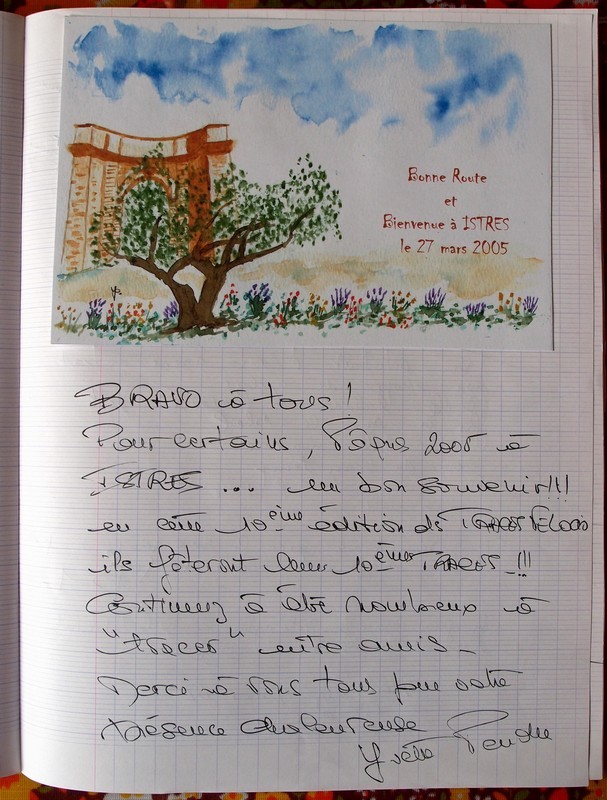 Bonne Route
et
Bienvenue à ISTRES
le 27 mars 2005
BRAVO à tous !
Pour certains, Pâques 2005 à
ISTRES ... un bon souvenir!!!
en cette 10ème édition de
ils fêteront leur 10ème !!!
Continuez à être nombreux à
"tracer" entre amis -
Merci à vous tous pour votre
présence chaleureuse